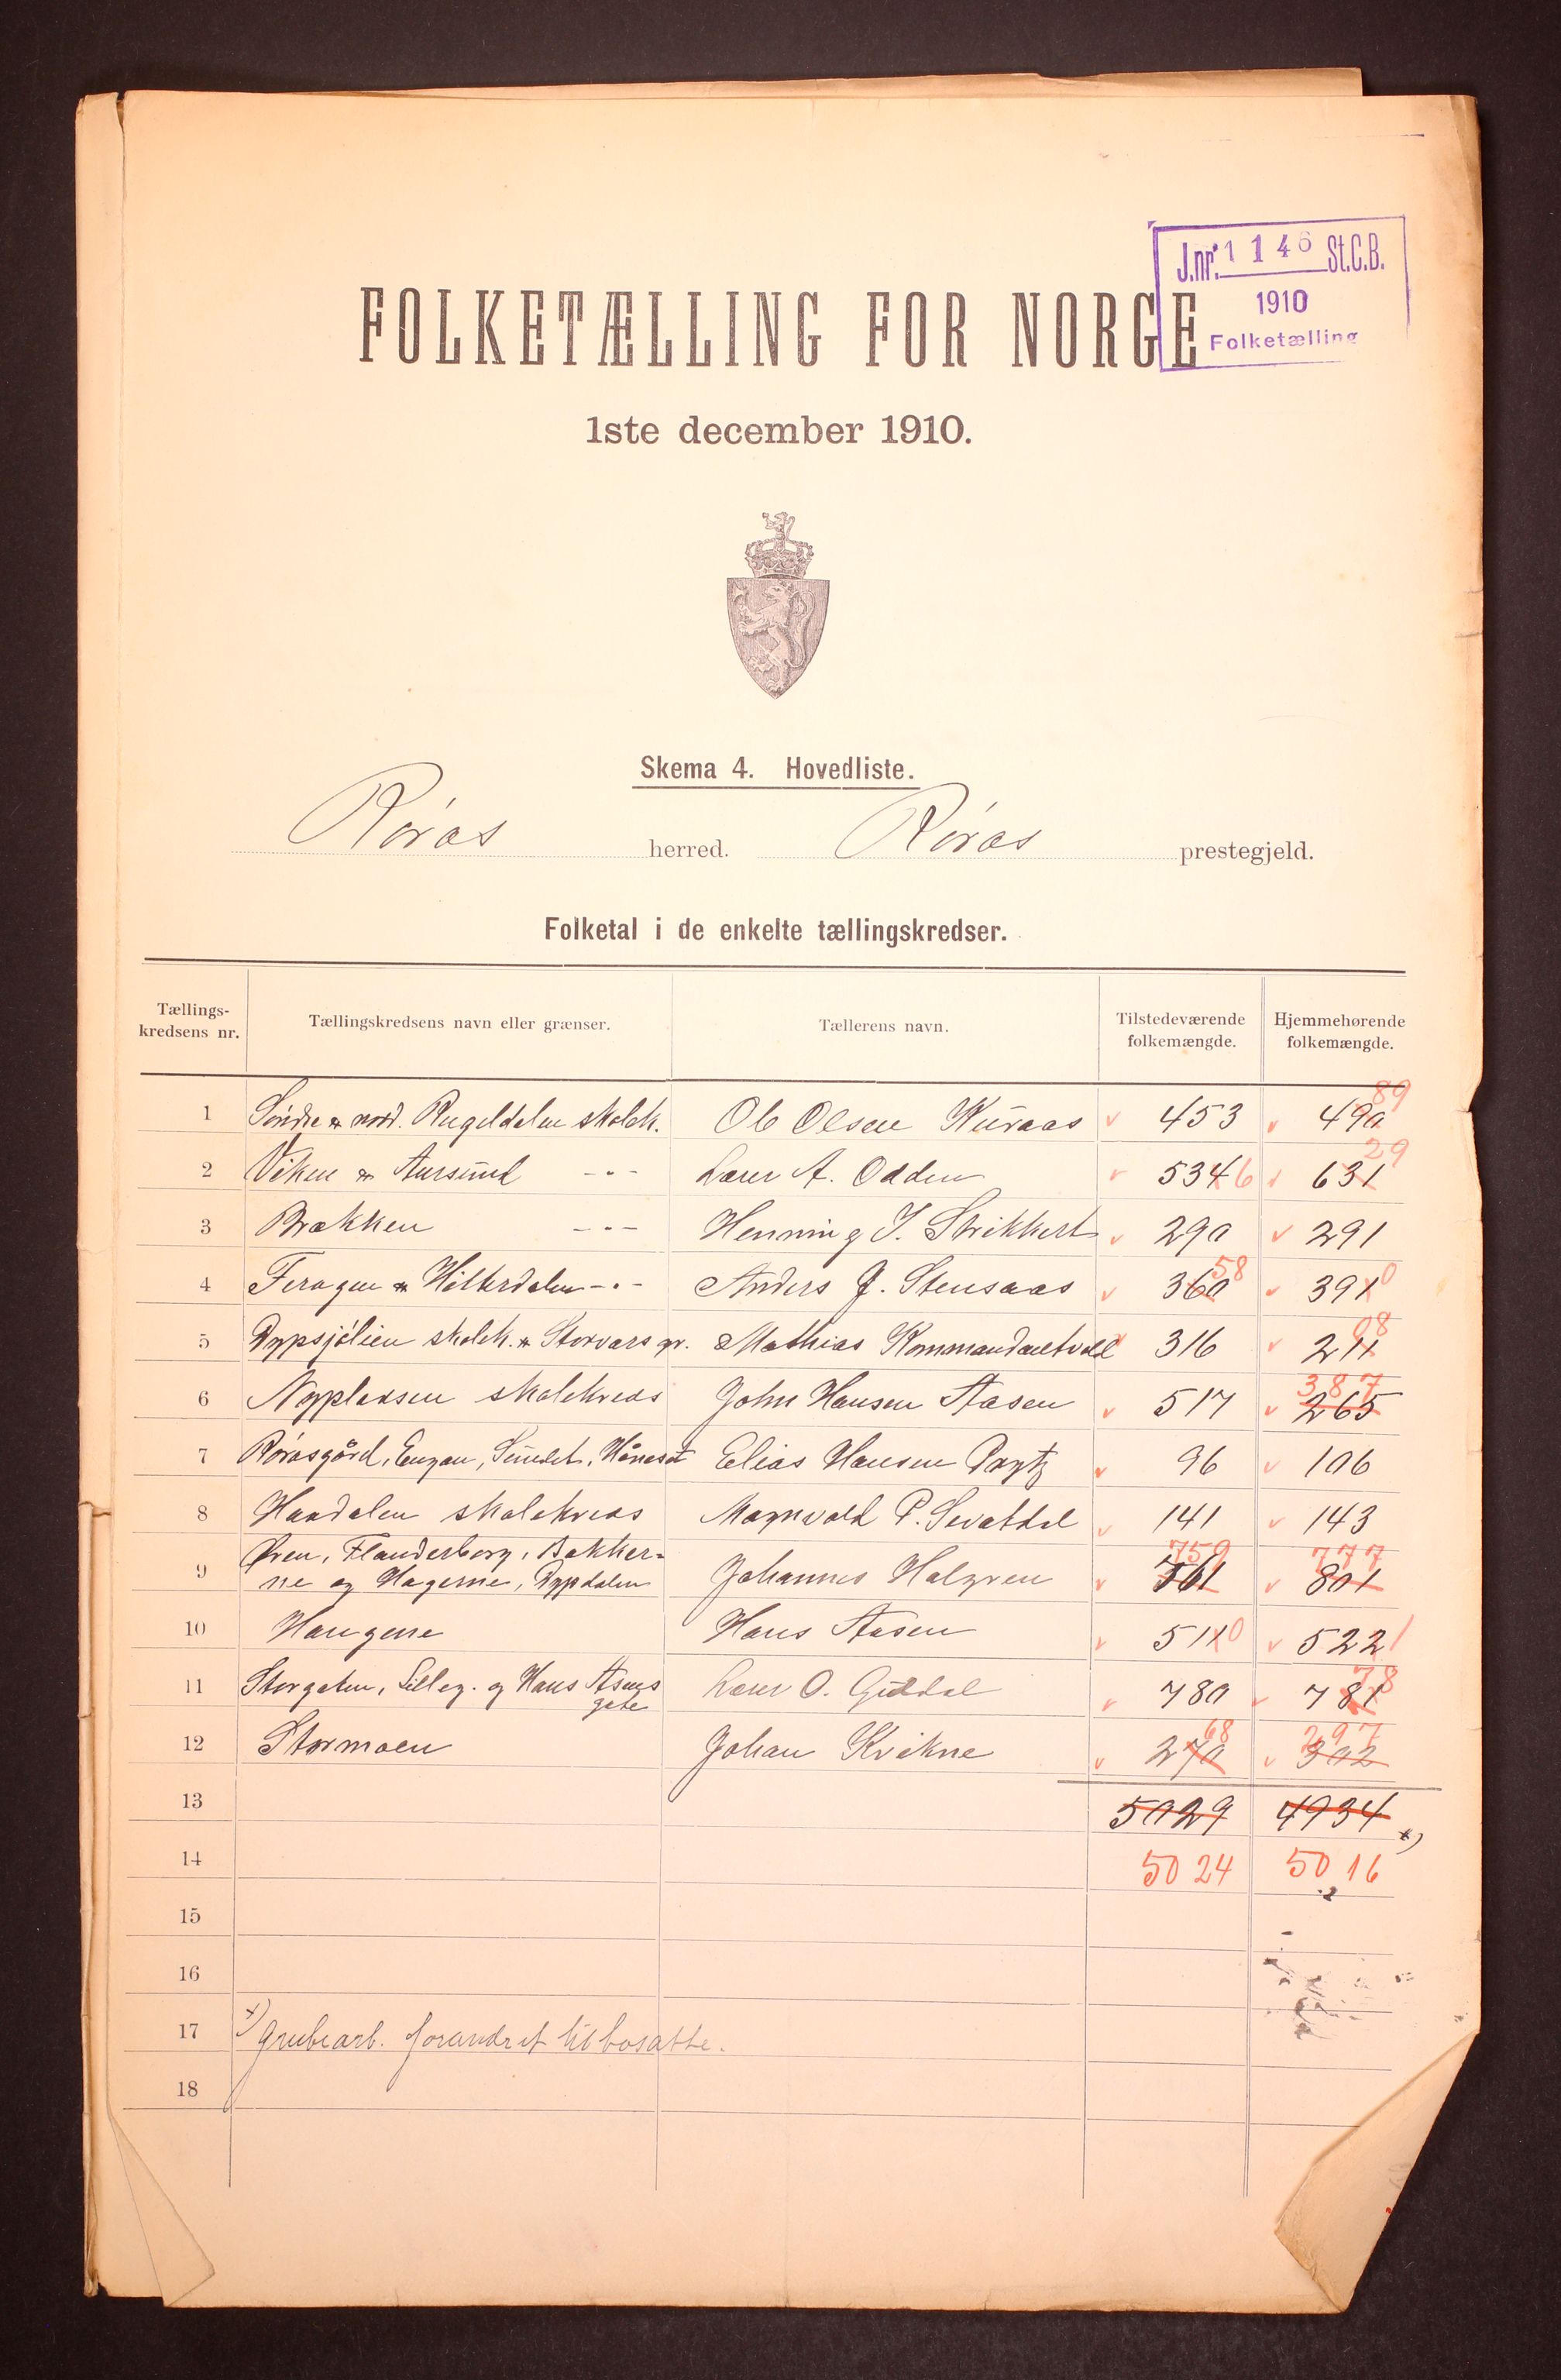 J.nr. 1146 St.C.B.
1910
Folketælling
FOLKETÆLLING FOR NORGE
1ste december 1910.
Skema 4. Hovedliste.
Røros herred. Røros prestegjeld.
Folketal i de enkelte tællingskredser.
Tællings-kredsens nr. Tællingskredsens navn eller grænser. Tællerens navn. Tilstedeværende folkemængde. Hjemmehørende folkemængde.
1 Søndre & nord. Rugeldalen skolek. Ole Olsen Kuraas 453 490 89
2 Viken & Aursund -"- Lærer A. Odden 534 6 631 29
3 Brækken -"- Henning J. Strikkert 290 291
4 Feragen & Hitterdalen -"- Anders J. Stensaas 360 58 391 0
5 Dypsjølien skolek. & Storvars gr. Mathias Kommandantvold 316 211 08
6 Nypladsen skolekreds John Hansen Aasen 517 265 387
7 Rørosgård, Engan, Sundet, Håneset Elias Hansen Prytz 96 106
8 Haadalen skolekreds Magnvald P. Sevatdal 141 143
9 Øren, Flanderborg, Bakker-
ne og Hagerne, Dypdalen Johannes Holzren 761 759 801 777
10 Haugene Hans Aasen 511 0 522 1
11 Storgaten, Lilleg. og Hans Aasens
gate Lærer O. Guldal 780 781 78
12 Stormoen Johan Kvikne 270 68 302 297
13 5029 4934 x)
14 5024 5016
15
16
17 x) Grubearb. forandret til bosatte.
18